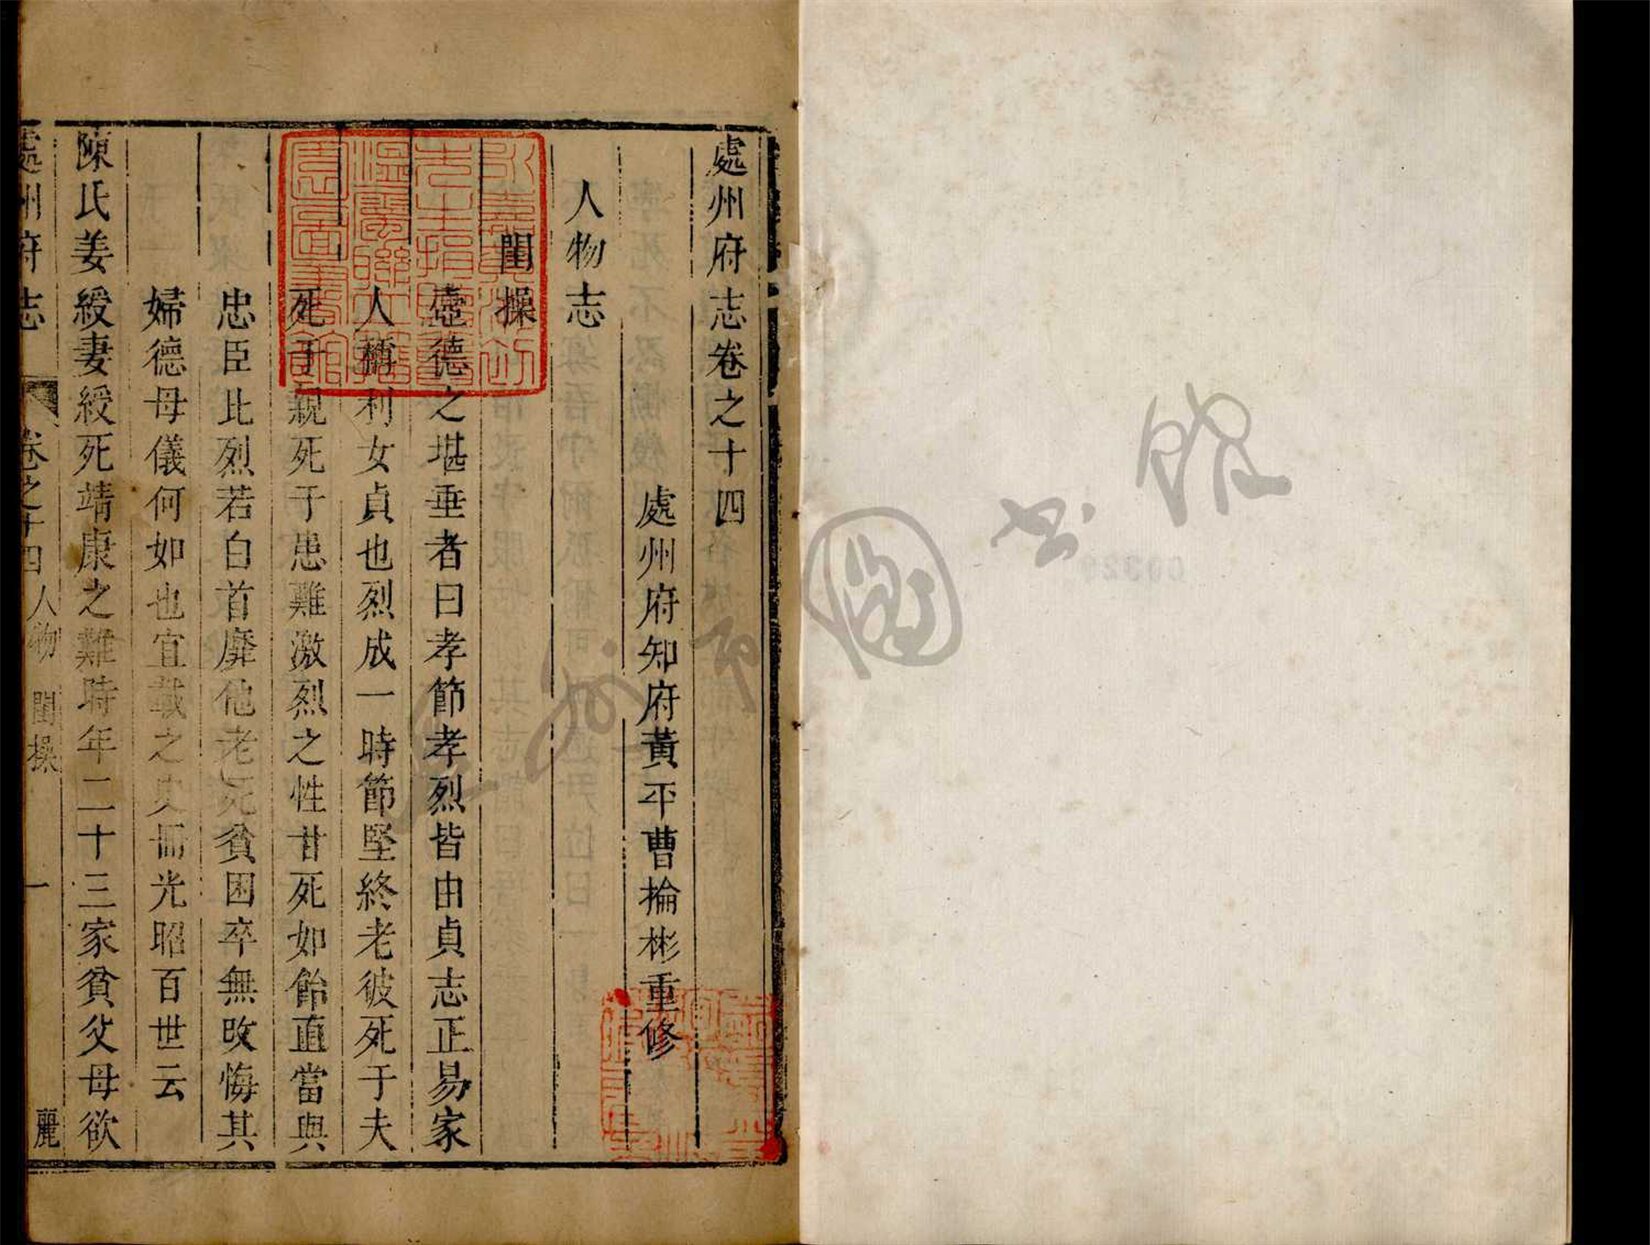 處州府志卷之十四
處州府知府黃平曹掄彬重修
人物志
閨操
壼德之堪垂者曰孝節孝烈皆由貞志正易家
人旙利女貞也烈成一時節堅終老彼死于夫
死于親死于患難激烈之性甘死如飴直當與
忠臣比烈若白首靡他老死貧困卒無改悔其
婦德母儀何如也宜載之史冊光昭百世云
陳氏姜綬妻綬死靖康之難時年二十三家貧父母欲
處州府志 卷之十四 人物 閨操 一 麗
溫州市圖書館